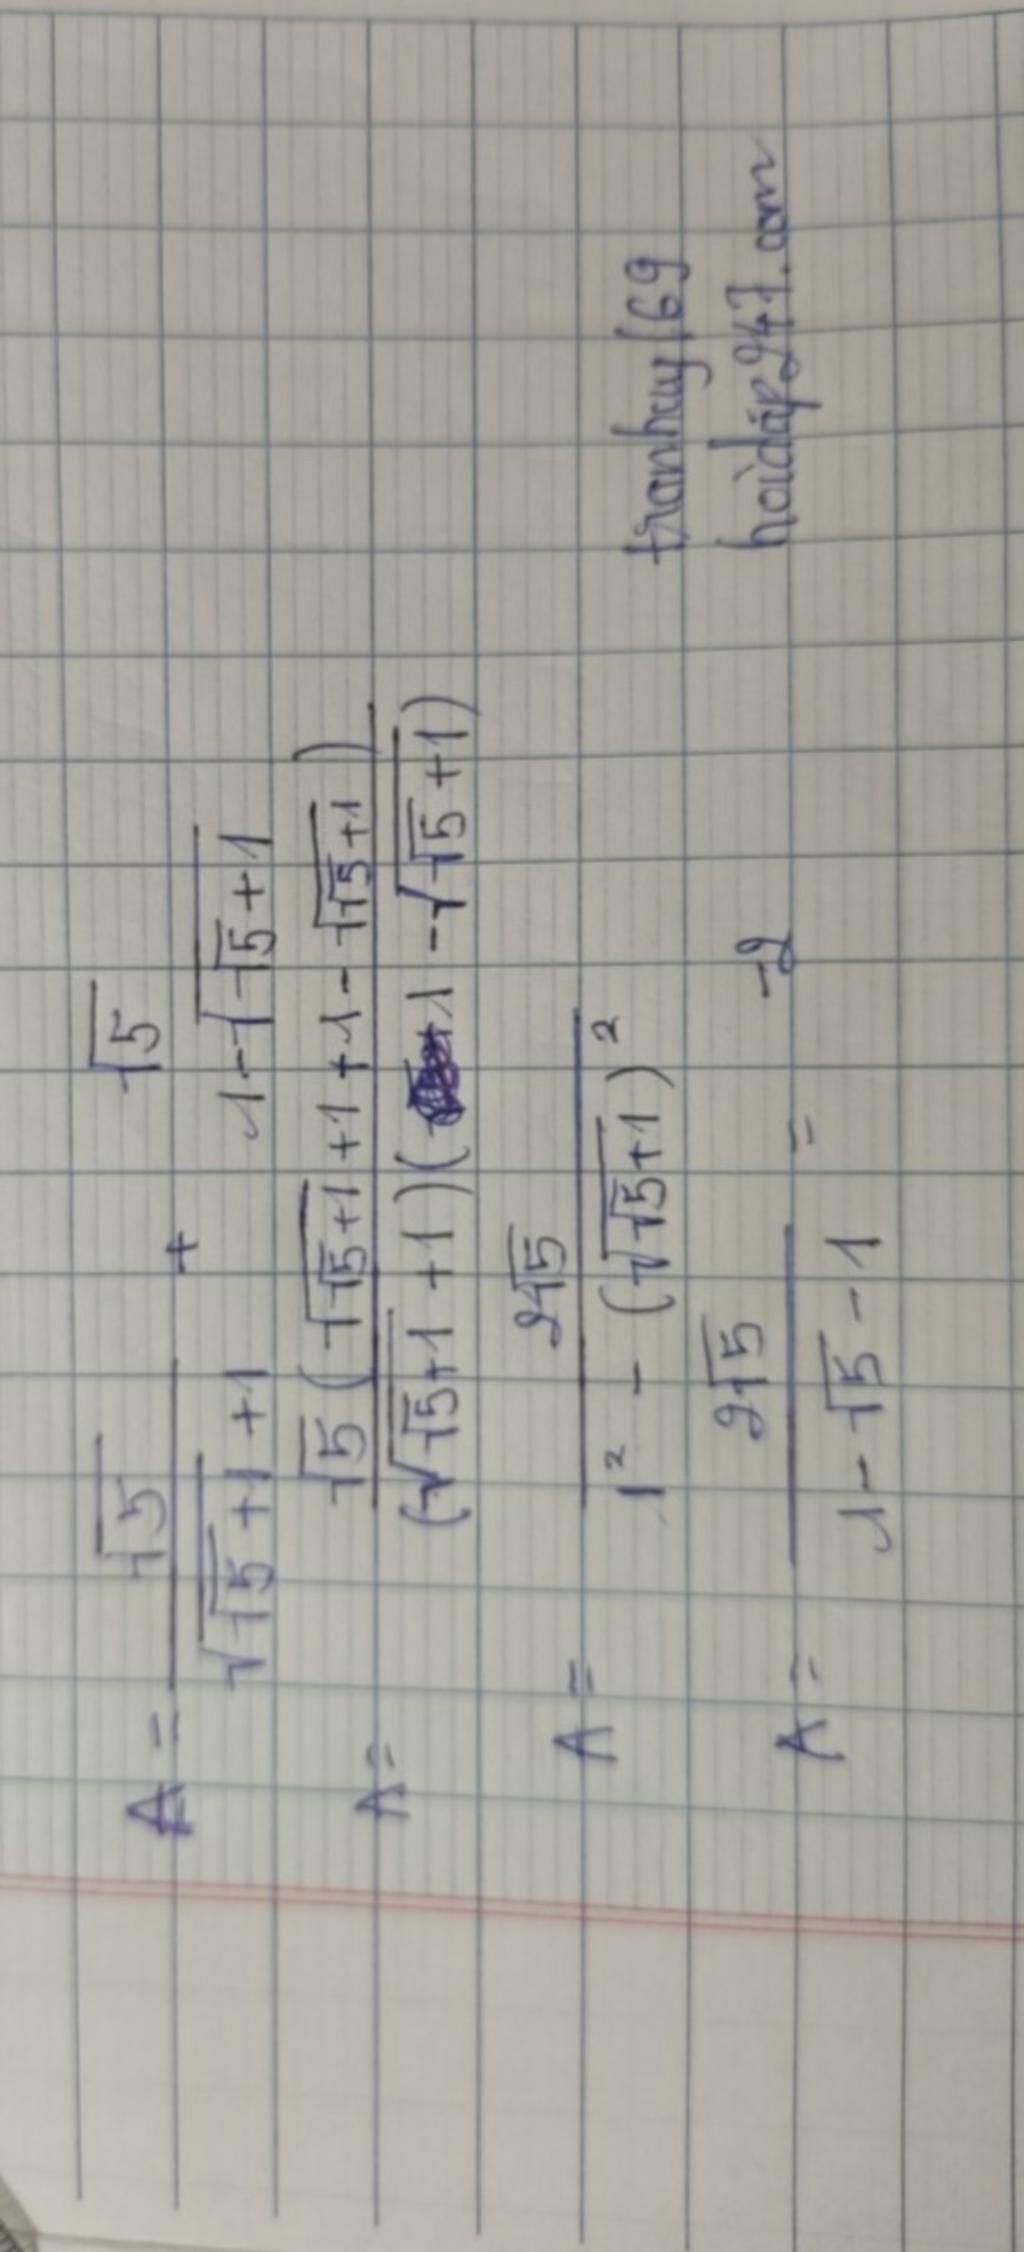 A = √5 / (√(√5+1) + 1) + √5 / (1 - √(√5+1))
A = √5 (√(√5+1) + 1 + 1 - √(√5+1)) / (√(√5+1) + 1)(1 - √(√5+1))
A = 2√5 / (1² - (√(√5+1))²)
A = 2√5 / (1 - √5 - 1) = -2
tranhuy169
hoidap247.com